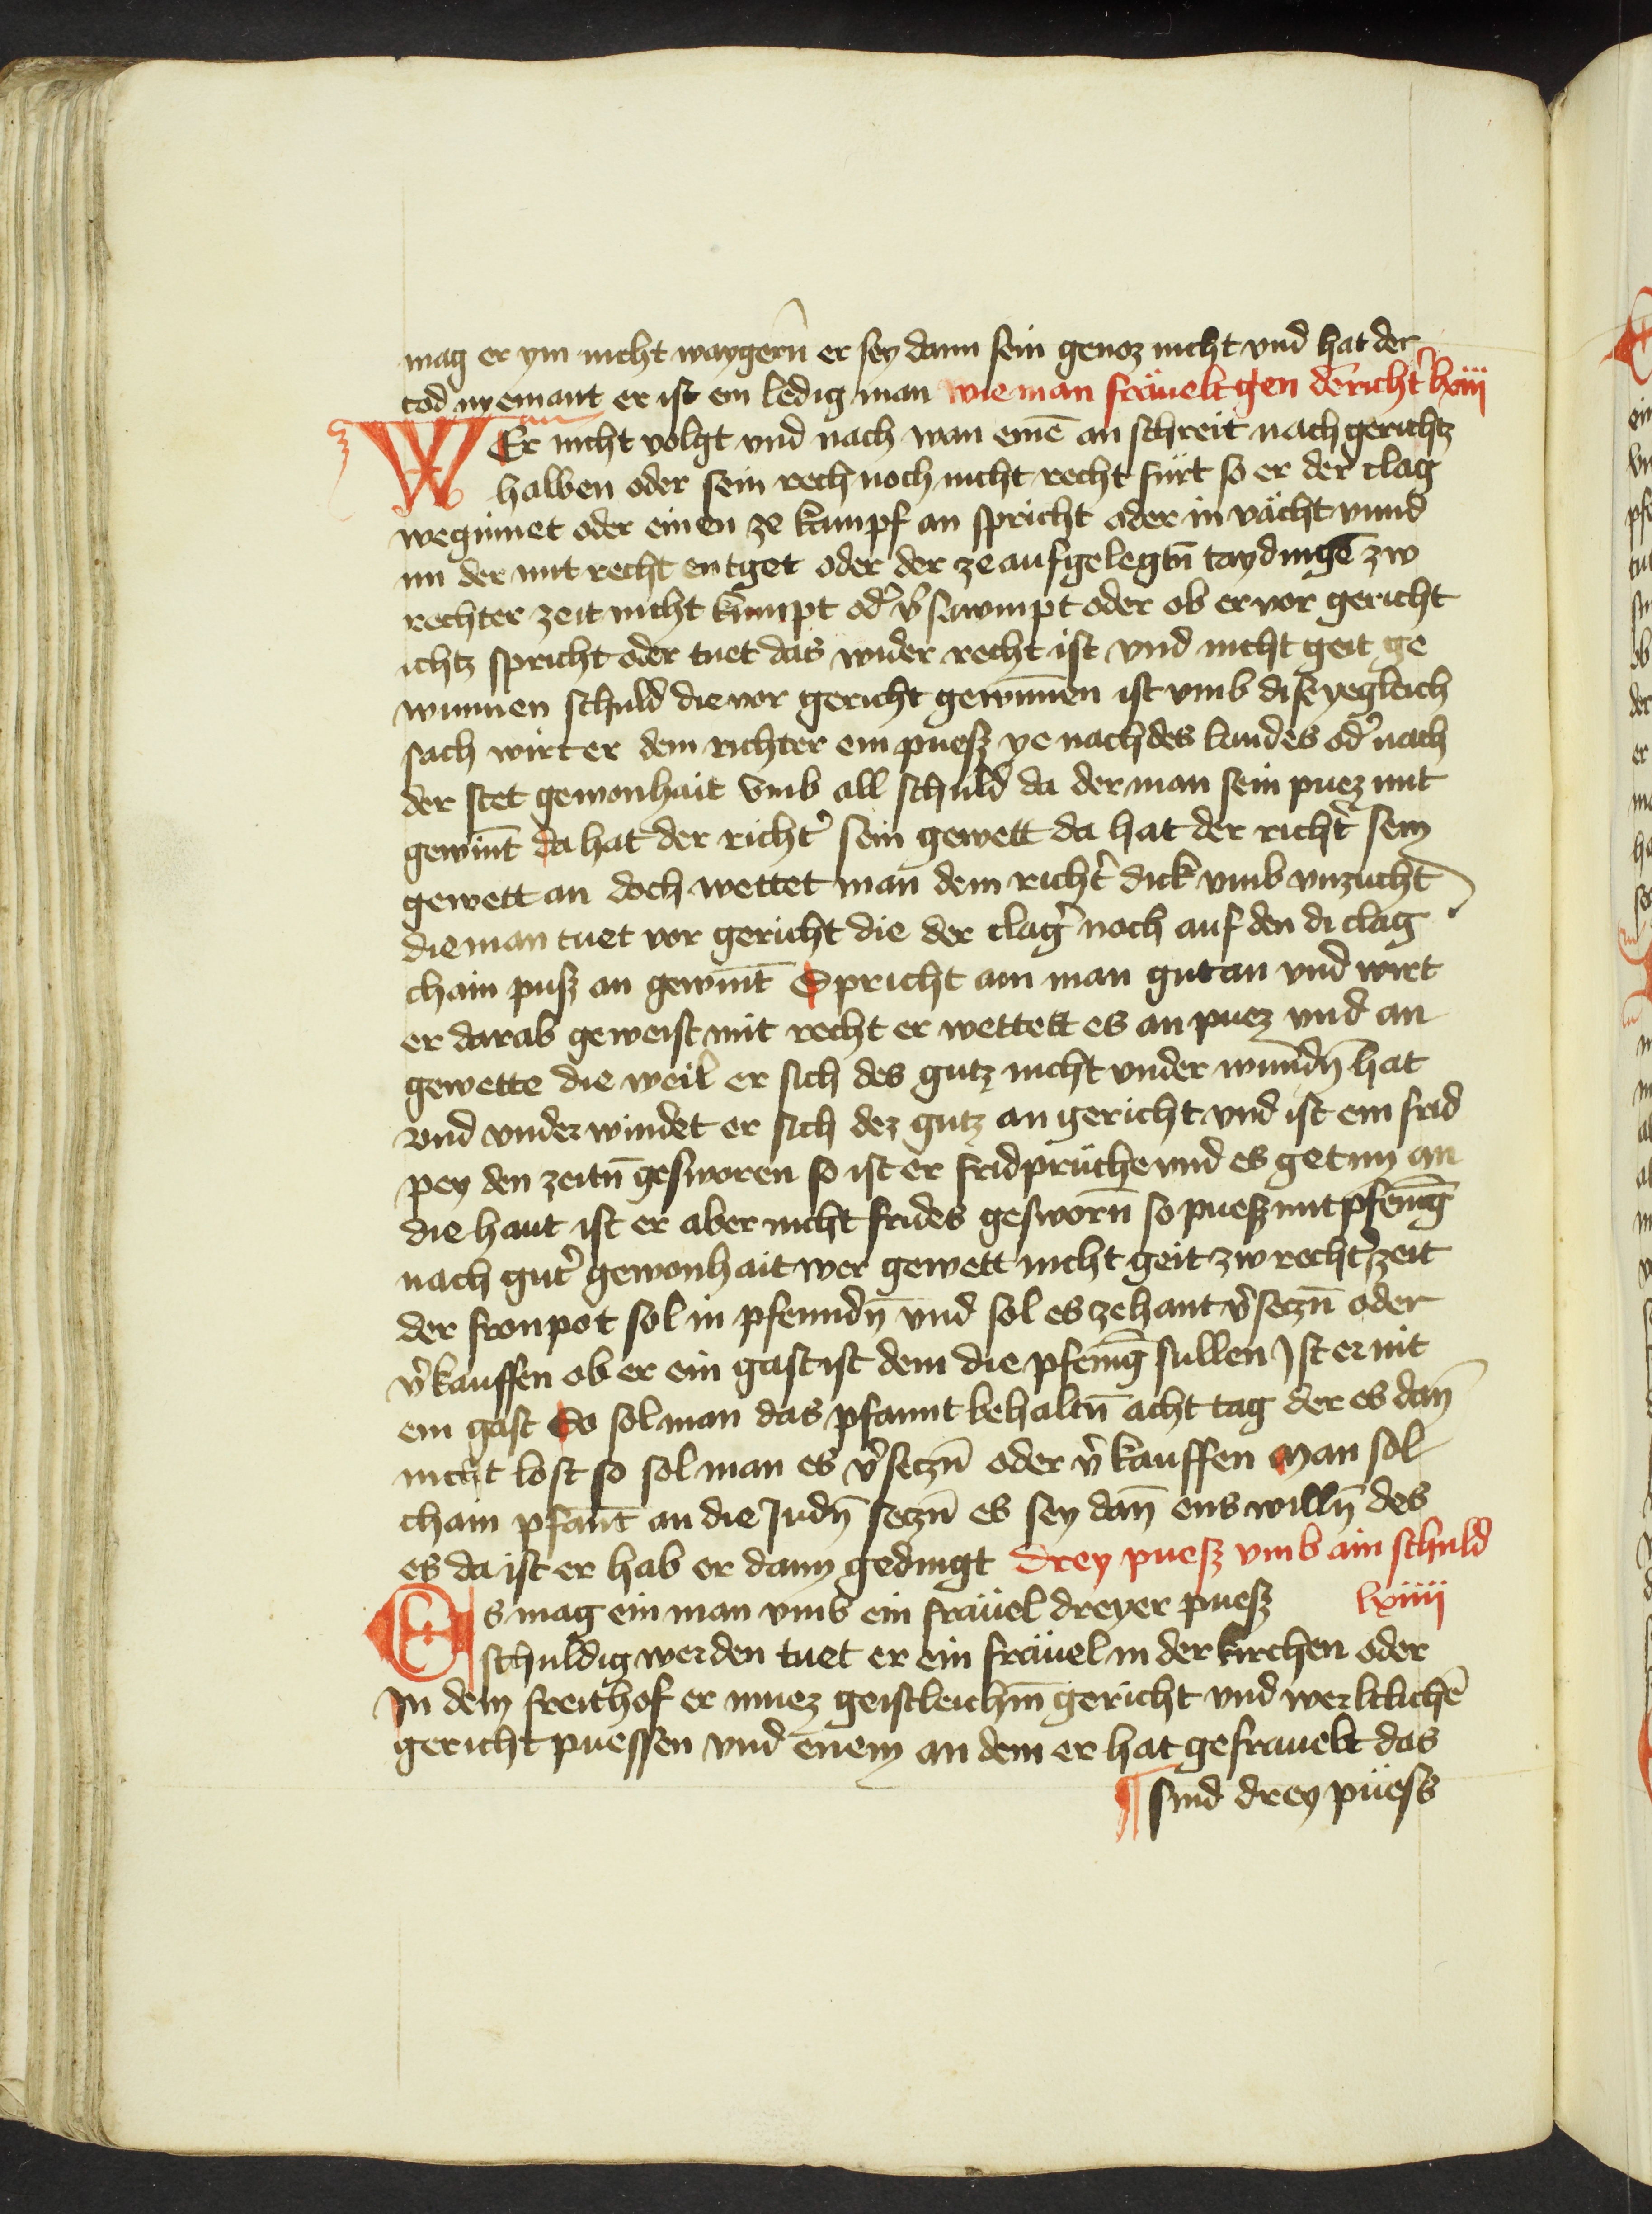 mag er ym nicht waygern̄ er sey dann sein genoz nicht vnd hat der
tod nyemant er ist ein ledig man wie man fräuelt gen dē richtʼ lxiii
WEr nicht volgt vnd nach wan einē an schreit nach gerichtz
halben oder sein rech noch nicht recht fürt so er der clag
weginnet oder einen ze kampf an spricht oder in vächt vnnd
im der mit recht entget oder der ze aufgelegtn̄ taydingē zw
rechter zeit nicht kümpt odʼ vʼsawmpt oder ob er vor gericht
ichtz spricht oder tuet das wider recht ist vnd nicht geit ge
wunnen schuld die vor gericht gewunnen ist vmb disʼ yegleich
sach wirt er dem richter ein puesz ye nach des landes odʼ nach
der stet gewonhait vmb all schuld da der man sein puez mit
gewint̄ da hat der richtʼ sein gewett da hat der richtʼ sein
gewett an doch wettet man dem richtʼ dick vmb vnzucht
die man tuet vor gericht die der clagʼ noch auf den di clag
chain pusz an gewint̄ Spricht ain man gut an vnd wirt
er darab geweist mit recht er wettett es an puez vnd an
gewette die weil er sich des gutz nicht vnder wundn̄ hat
vnd vnder windet er sich dez gutz an gericht vnd ist ein frid
pey den zeitn̄ gesworen so ist er fridprüche vnd es get im an
die haut ist er aber nicht frides gesworn̄ so puesz mit pfenīg
nach gutʼ gewonhait wer gewett nicht geit zw rechtʼ zeit
der fronpot sol in pfenndn̄ vnd sol es zehant vʼseczn̄ oder
vʼkauffen ob er ein gast ist dem die pfenīg sullen Ist er nit
ein gast So sol man das pfannt behaltn̄ acht tag der es dan̄
nicht lost so sol man es vʼseczn̄ oder vʼkauffen Man sol
chain pfant̄ an die Judn̄ seczn̄ es sey dan̄ ens willn̄ des
es da ist er hab er dann gedingt Drey puesz vmb ain schuld
Es mag ein man vmb ein fräuel dreyer puesz lxiiii
schuldig werden tuet er ein fräuel in der kirchen oder
In dem freithof er muez geistleichm̄ gericht vnd werltlichē
gericht puessen vnd enem an dem er hat gefrauelt das
¶ sind drey püess